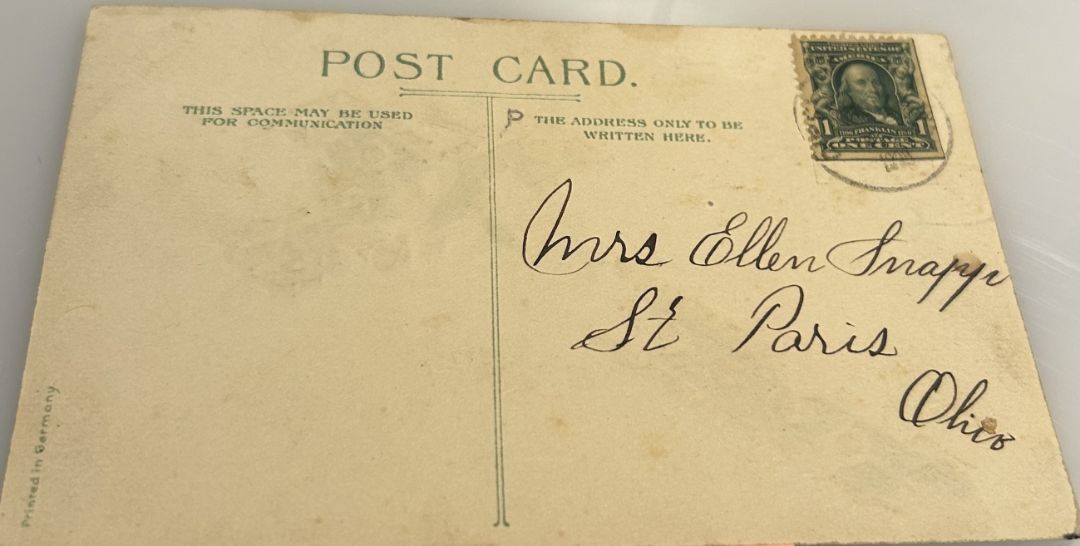 POST CARD.
THIS SPACE MAY BE USED
FOR COMMUNICATION
P
THE ADDRESS ONLY TO BE
WRITTEN HERE.
UNITED STATES OF
AMERICA
1 FRANKLIN 1
POSTAGE
ONE CENT
Mrs Ellen Snapp
St Paris
Ohio
Printed in Germany